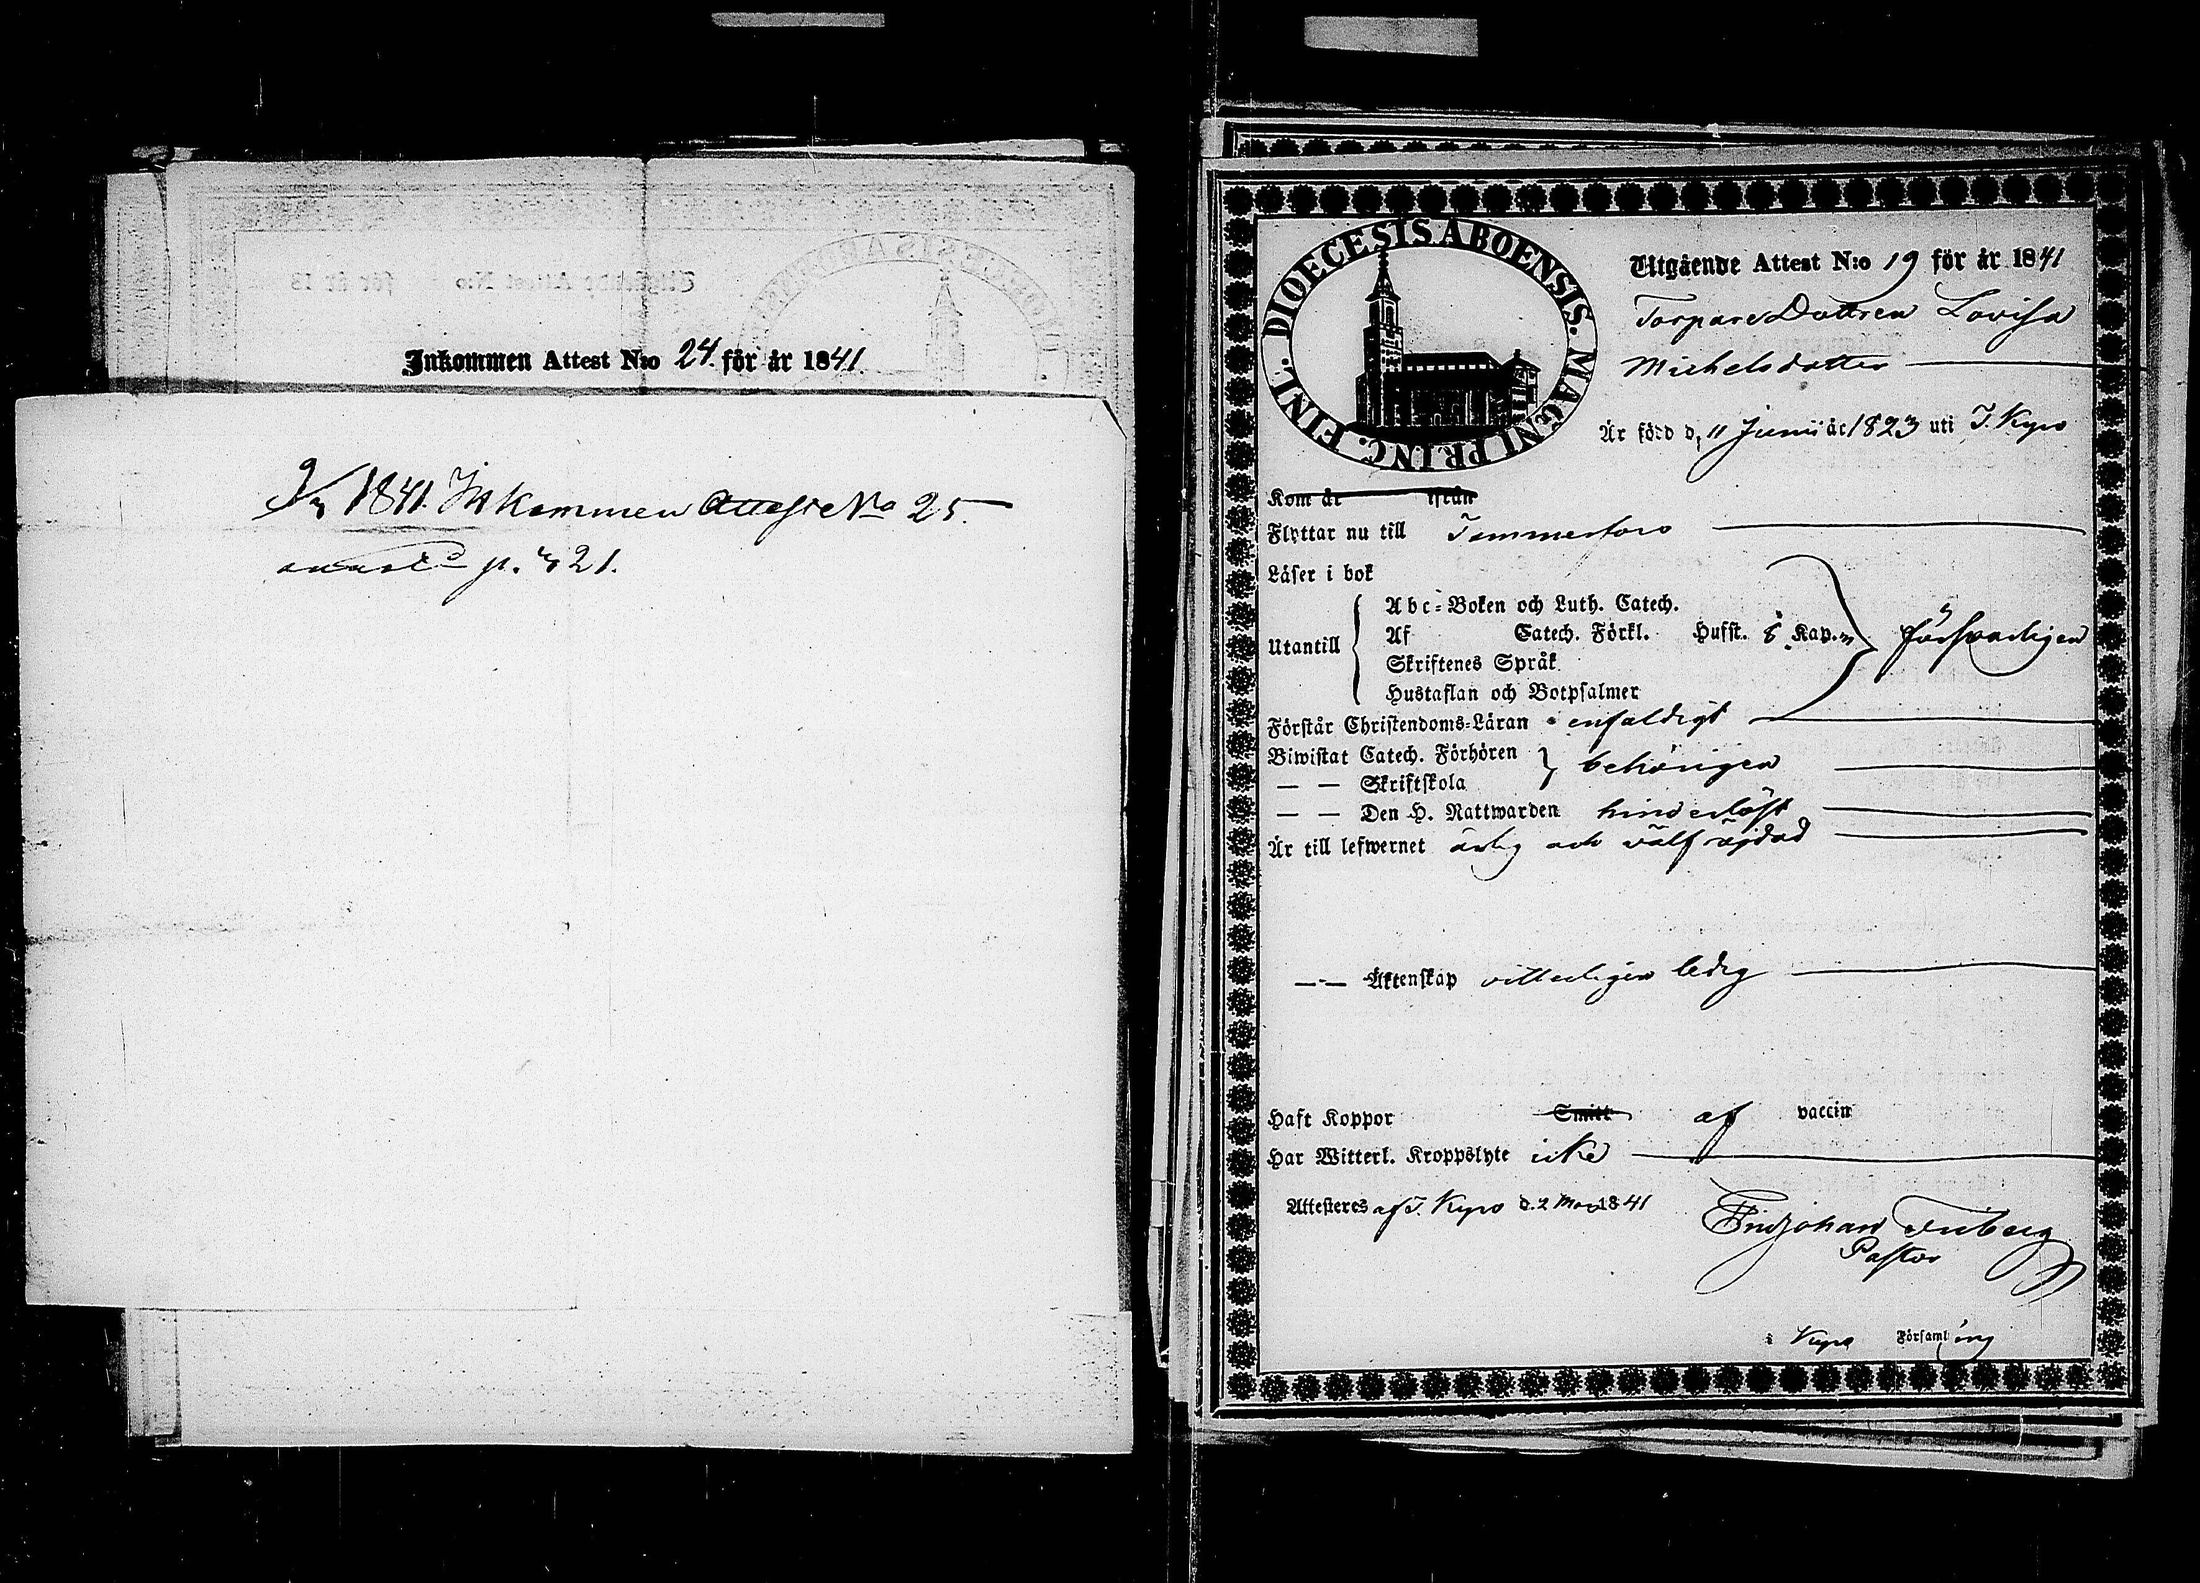 Inkommen Attest N:o 24. för år 1841.
1841. Inkommen Attest No 25.
p. 421.
DIOECESIS ABOENSIS. MAGNI PRINC. FINL.
Utgående Attest N:o 19 för år 1841
TorpareDottren Lovisa
Michelsdotter
Är född d. 11 Junii år 1823 uti I. Kyro
Kom år ifrån
Flyttar nu till Tammerfors
Läser i bok
Abc-Boken och Luth. Catech.
Utantill Af Catech. Förkl. Hufst. Kap. försvarligen
Skriftenes Språk
Hustaflan och Botpsalmer
Förstår Christendoms-Läran enfaldigt
Biwistat Catech. Förhören behörigen
— — Skriftskola
— — Den H. Nattwarden hinderlöst
Är till lefwernet ärlig och välfräjdad
— — Äktenskap vitterligen ledig
Haft Koppor Smitt af vaccin
Har Witterl. Kroppslyte icke
Attesteres af I. Kyro d. 2 Mars 1841
Friberg
Pastor
i Kyro Församling